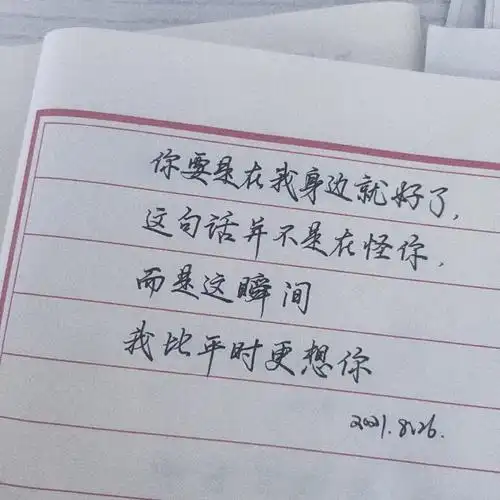 你要是在我身边就好了,
这句话并不是在怪你,
而是这瞬间
我比平时更想你
2021.8.26.